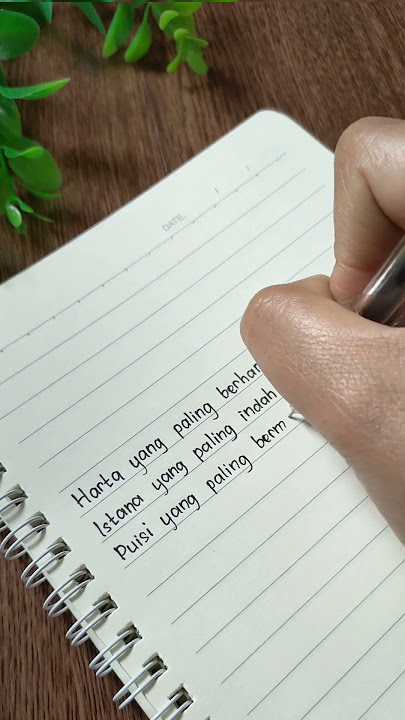 DATE
Harta yang paling berhar
Istana yang paling indah
Puisi yang paling berm